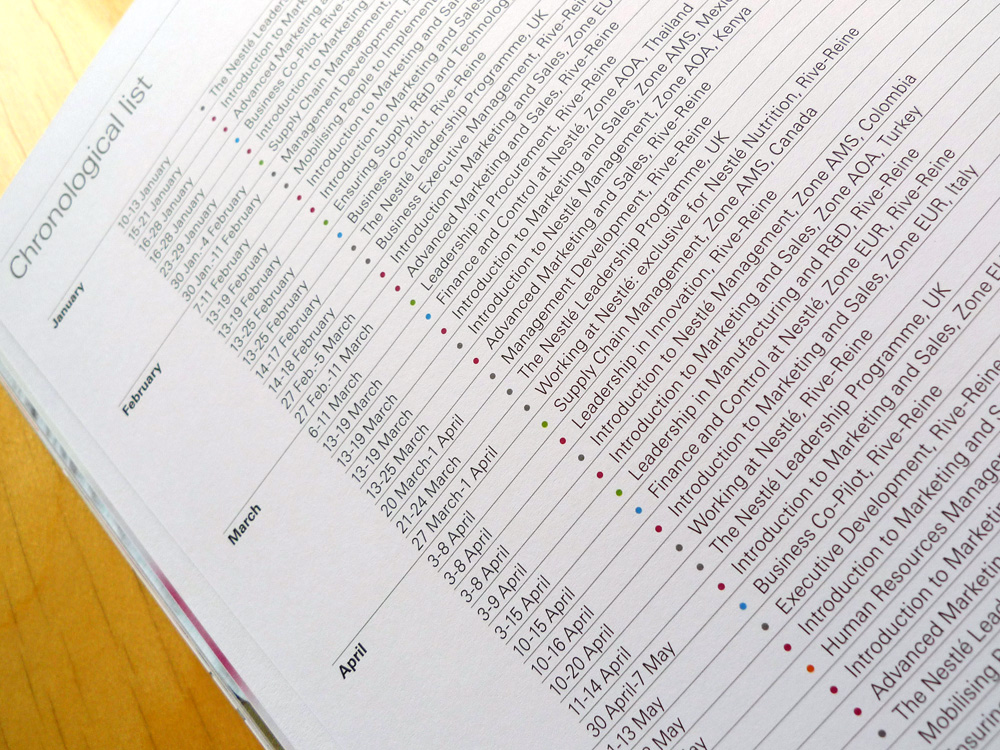 Chronological list
January
10-13 January
15-21 January
16-28 January
16-28 January
23-29 January
30 Jan.-4 February
30 Jan.-11 February
February
7-11 February
13-19 February
13-19 February
13-25 February
13-25 February
14-17 February
14-18 February
27 Feb.-5 March
27 Feb.-11 March
March
6-11 March
13-19 March
13-19 March
13-25 March
20 March-1 April
21-24 March
27 March-1 April
April
3-8 April
3-8 April
3-8 April
3-9 April
3-15 April
10-15 April
10-16 April
10-20 April
11-14 April
30 April-7 May
1-13 May
May
The Nestlé Leaders
Introduction to Mark
Advanced Marketing
Business Co-Pilot, Rive-
Introduction to Marketing
Supply Chain Management,
Management Development,
Mobilising People to Implement
Introduction to Marketing and Sales
Ensuring Supply, R&D and Technolog
Business Co-Pilot, Rive-Reine
The Nestlé Leadership Programme, UK
Business Executive Management, Rive-Rein
Introduction to Marketing and Sales, Zone EU
Advanced Marketing and Sales, Rive-Reine
Leadership in Procurement, Rive-Reine
Finance and Control at Nestlé, Zone AOA, Thailand
Introduction to Marketing and Sales, Zone AMS, Mexi
Introduction to Nestlé Management, Zone AOA, Kenya
Advanced Marketing and Sales, Rive-Reine
Management Development, Rive-Reine
The Nestlé Leadership Programme, UK
Working at Nestlé: exclusive for Nestlé Nutrition, Rive-Reine
Supply Chain Management, Zone AMS, Canada
Leadership in Innovation, Rive-Reine
Introduction to Nestlé Management, Zone AMS, Colombia
Introduction to Marketing and Sales, Zone AOA, Turkey
Leadership in Manufacturing and R&D, Rive-Reine
Finance and Control at Nestlé, Zone EUR, Rive-Reine
Introduction to Marketing and Sales, Zone EUR, Italy
Working at Nestlé, Rive-Reine
The Nestlé Leadership Programme, UK
Introduction to Marketing and Sales, Zone E
Business Co-Pilot, Rive-Reine
Executive Development, Rive-Reine
Introduction to Marketing and S
Human Resources Manage
Introduction to Marketin
Advanced Marketing
The Nestlé Lea
Mobilising P